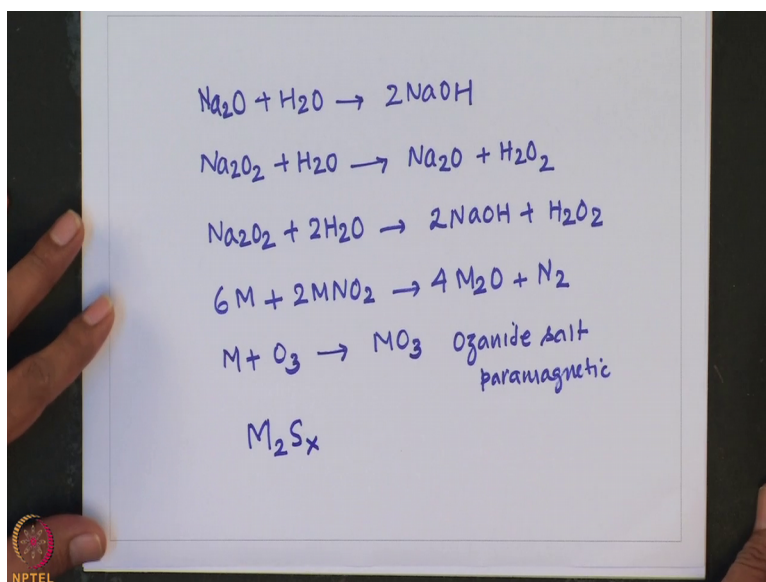 Na₂O + H₂O → 2NaOH
Na₂O₂ + H₂O → Na₂O + H₂O₂
Na₂O₂ + 2H₂O → 2NaOH + H₂O₂
6M + 2MNO₂ → 4M₂O + N₂
M + O₃ → MO₃ Ozanide salt
paramagnetic
M₂Sₓ
NPTEL